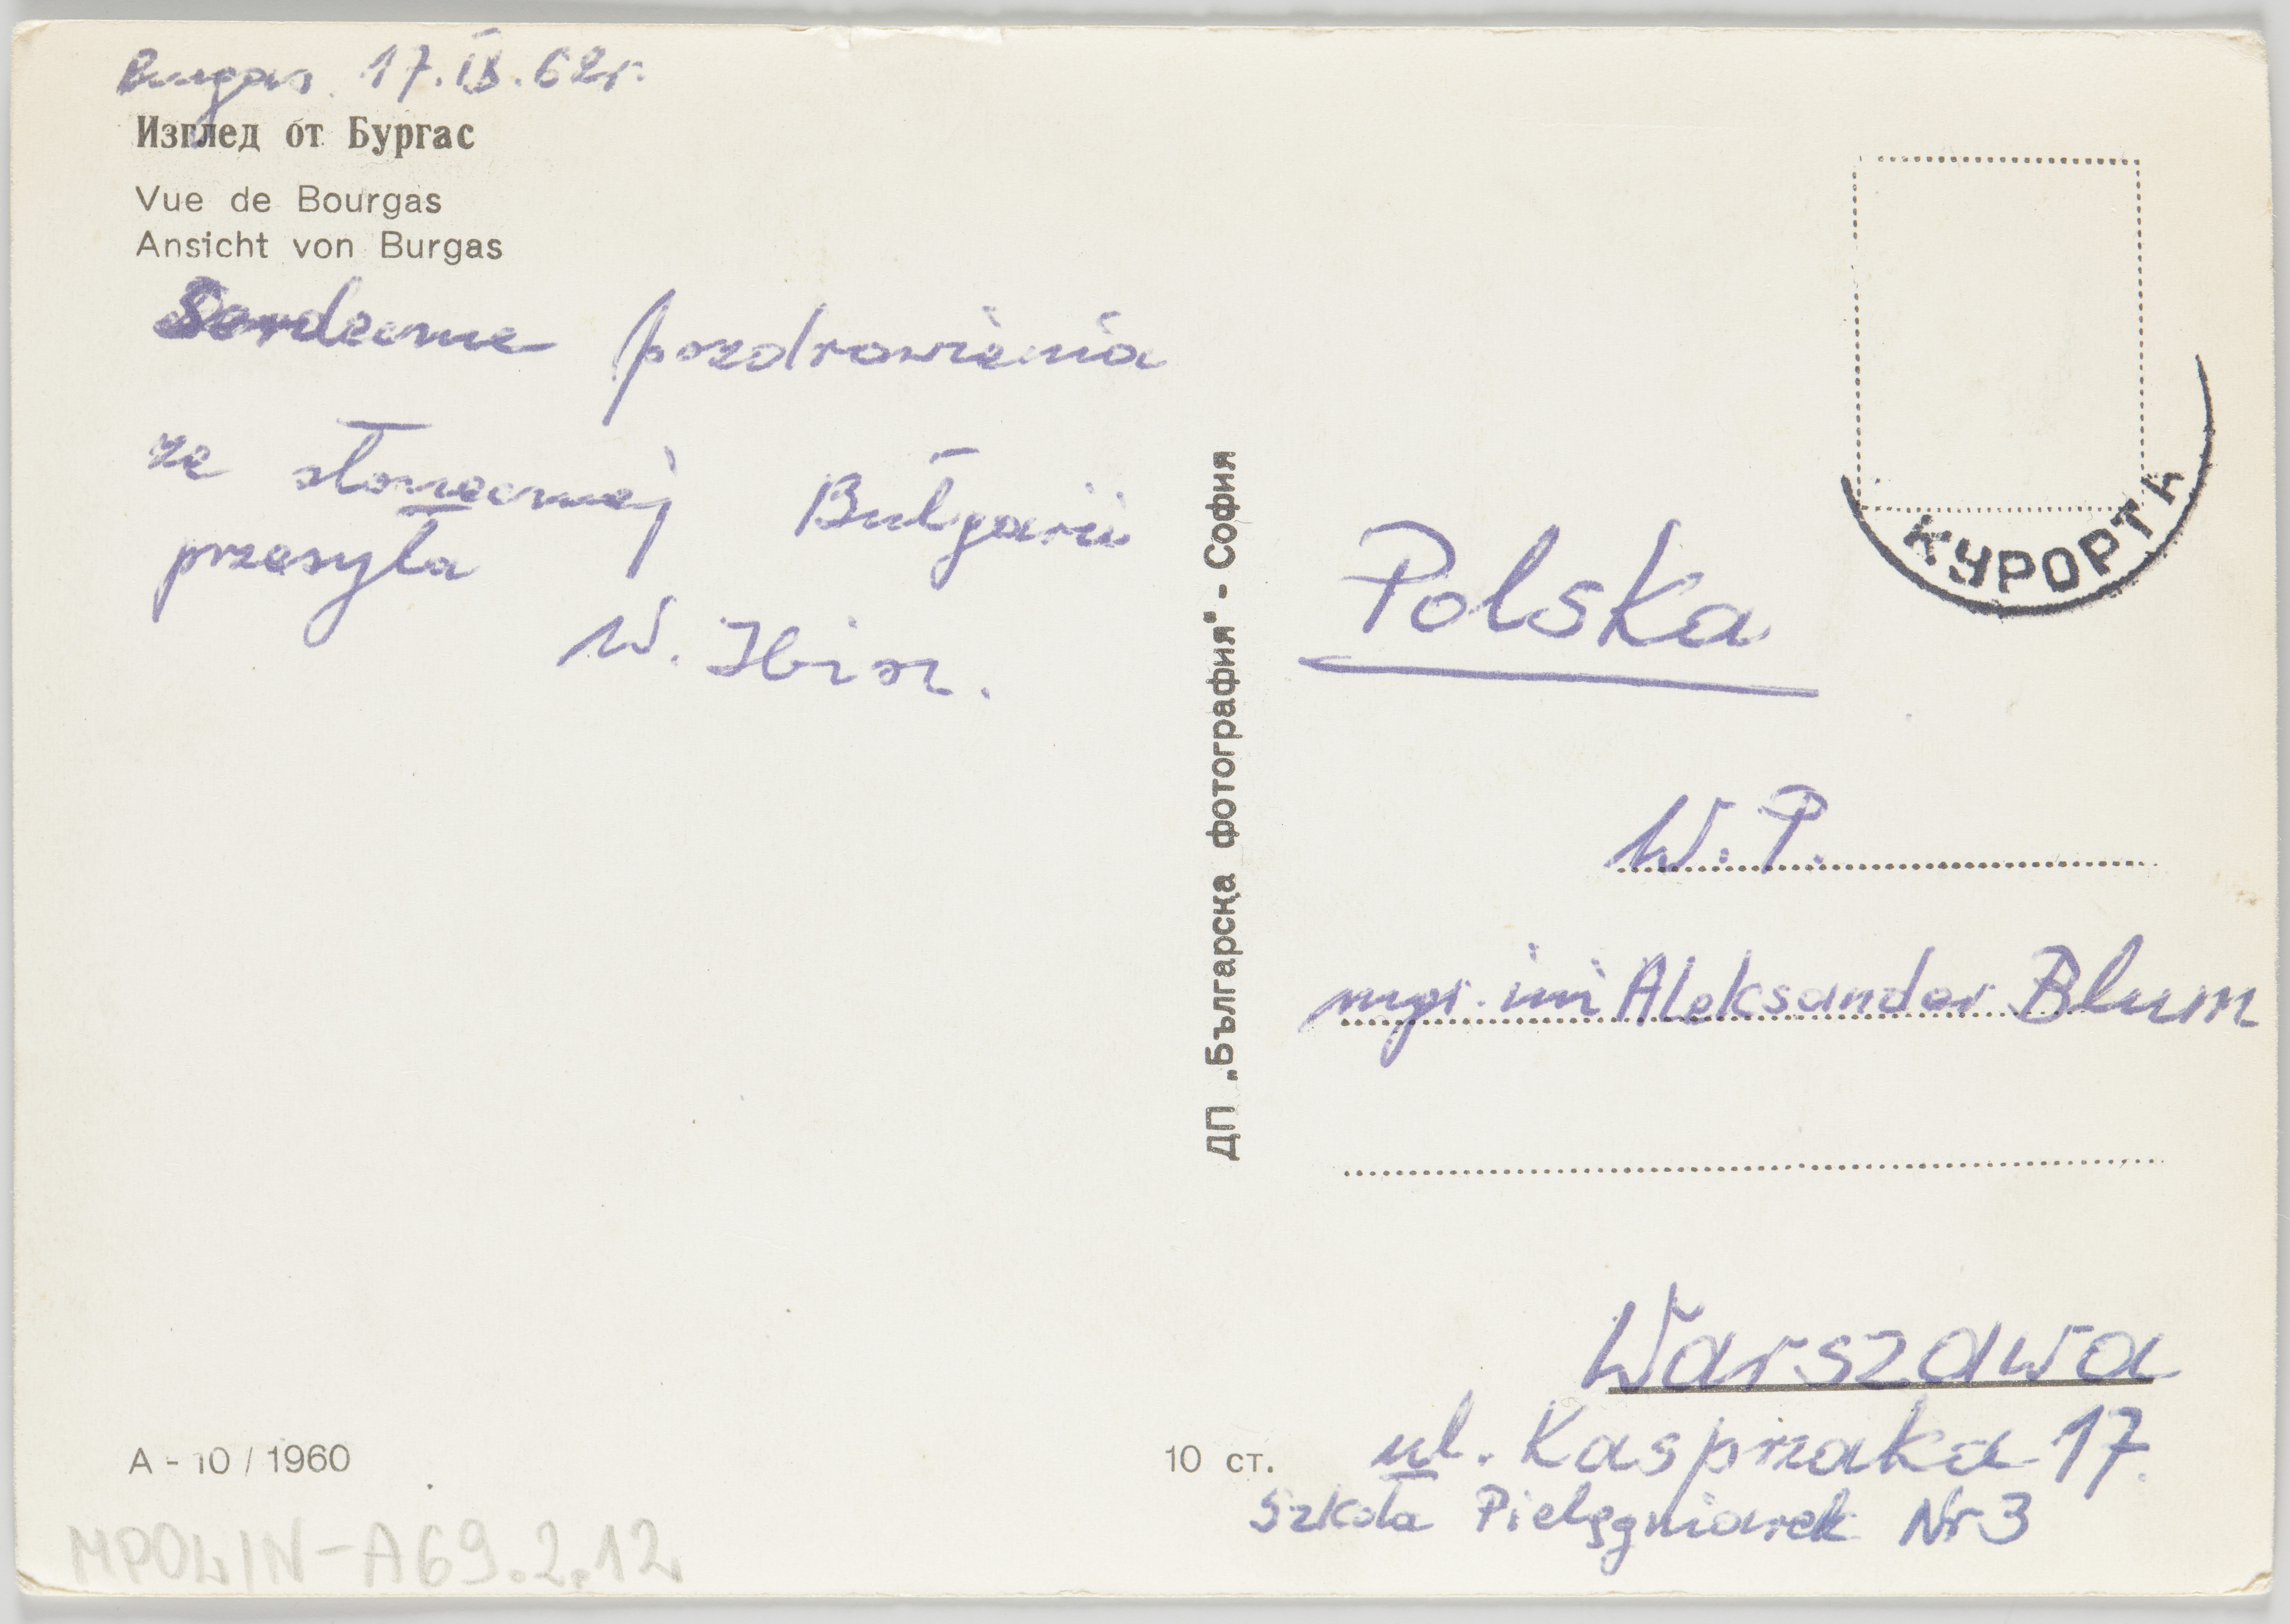 Burgas. 17.IX.62r.
Изглед от Бургас
Vue de Bourgas
Ansicht von Burgas
Serdeczne pozdrowienia
ze słonecznej Bułgarii
przesyła
W.
КУРОРТА
Polska
W. P.
mgr. inż Aleksander Blum
Warszawa
ul. Kasprzaka 17.
Szkoła Pielęgniarek Nr 3
ДП „Българска фотография" - София
А - 10 / 1960
10 ст.
MPOLIN-A69.2.12